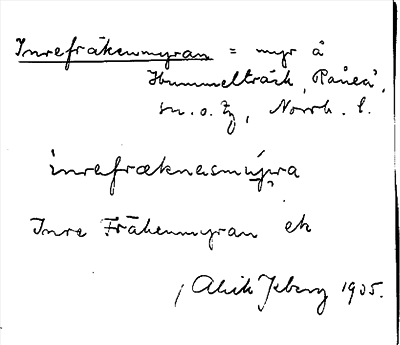 Inrefräkenmyran = myr å
Hummelträsk, Råneå,
sn. o. tg, Norrb. l.
inrefræknasmýra
Inre Fräkenmyran ek
1935.